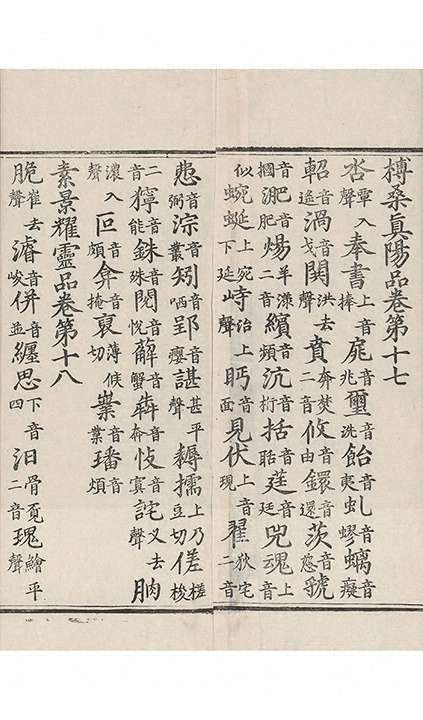 榑桑真陽品卷第十七
杳覃入聲奉書上音捧音兆璽音洗飴音夷虬音蟉螭音癡
軺音遙渦音戈閧洪去聲賁奔焚二音攸音由鐶音還茨音慈虢
音摑淝音肥煬羊漾二音繽音頻沆音桁括音聒莛音廷兕魂上
似蜿蜒上宛下延峙治上聲眄音面見伏上音現翟狄宅二音
音弼淙音叢矧音哂郢音癭諶甚平聲耨擩上乃豆切傞槎梭
二音獰音能銖音殊閱音悅薢音蟹犇音奔音寞詫义去聲朒
濃入聲叵音頗弇音掩裒薄侯切業音業璠音煩
素景耀靈品卷第十八
脆崔去聲濬音峻併音並纏思下音四汨骨覓二音瑰繪平聲